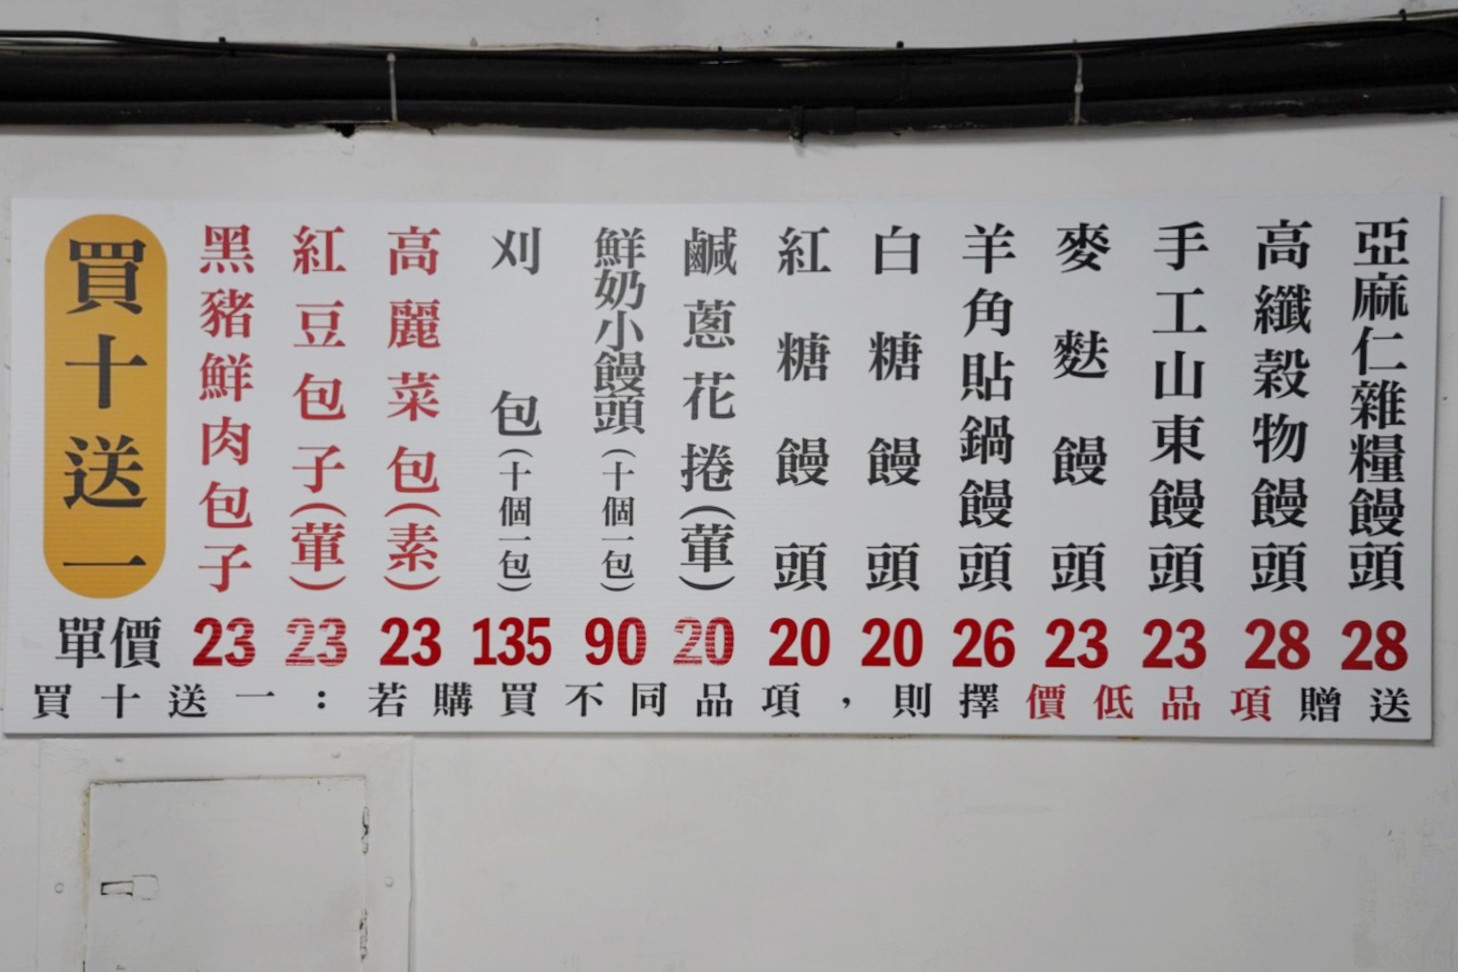 買十送一
黑豬鮮肉包子
紅豆包子(葷)
高麗菜包(素)
刈包(十個一包)
鮮奶小饅頭(十個一包)
鹹蔥花捲(葷)
紅糖饅頭
白糖饅頭
羊角貼鍋饅頭
麥麩饅頭
手工山東饅頭
高纖穀物饅頭
亞麻仁雜糧饅頭
單價 23 23 23 135 90 20 20 20 26 23 23 28 28
買十送一：若購買不同品項，則擇價低品項贈送